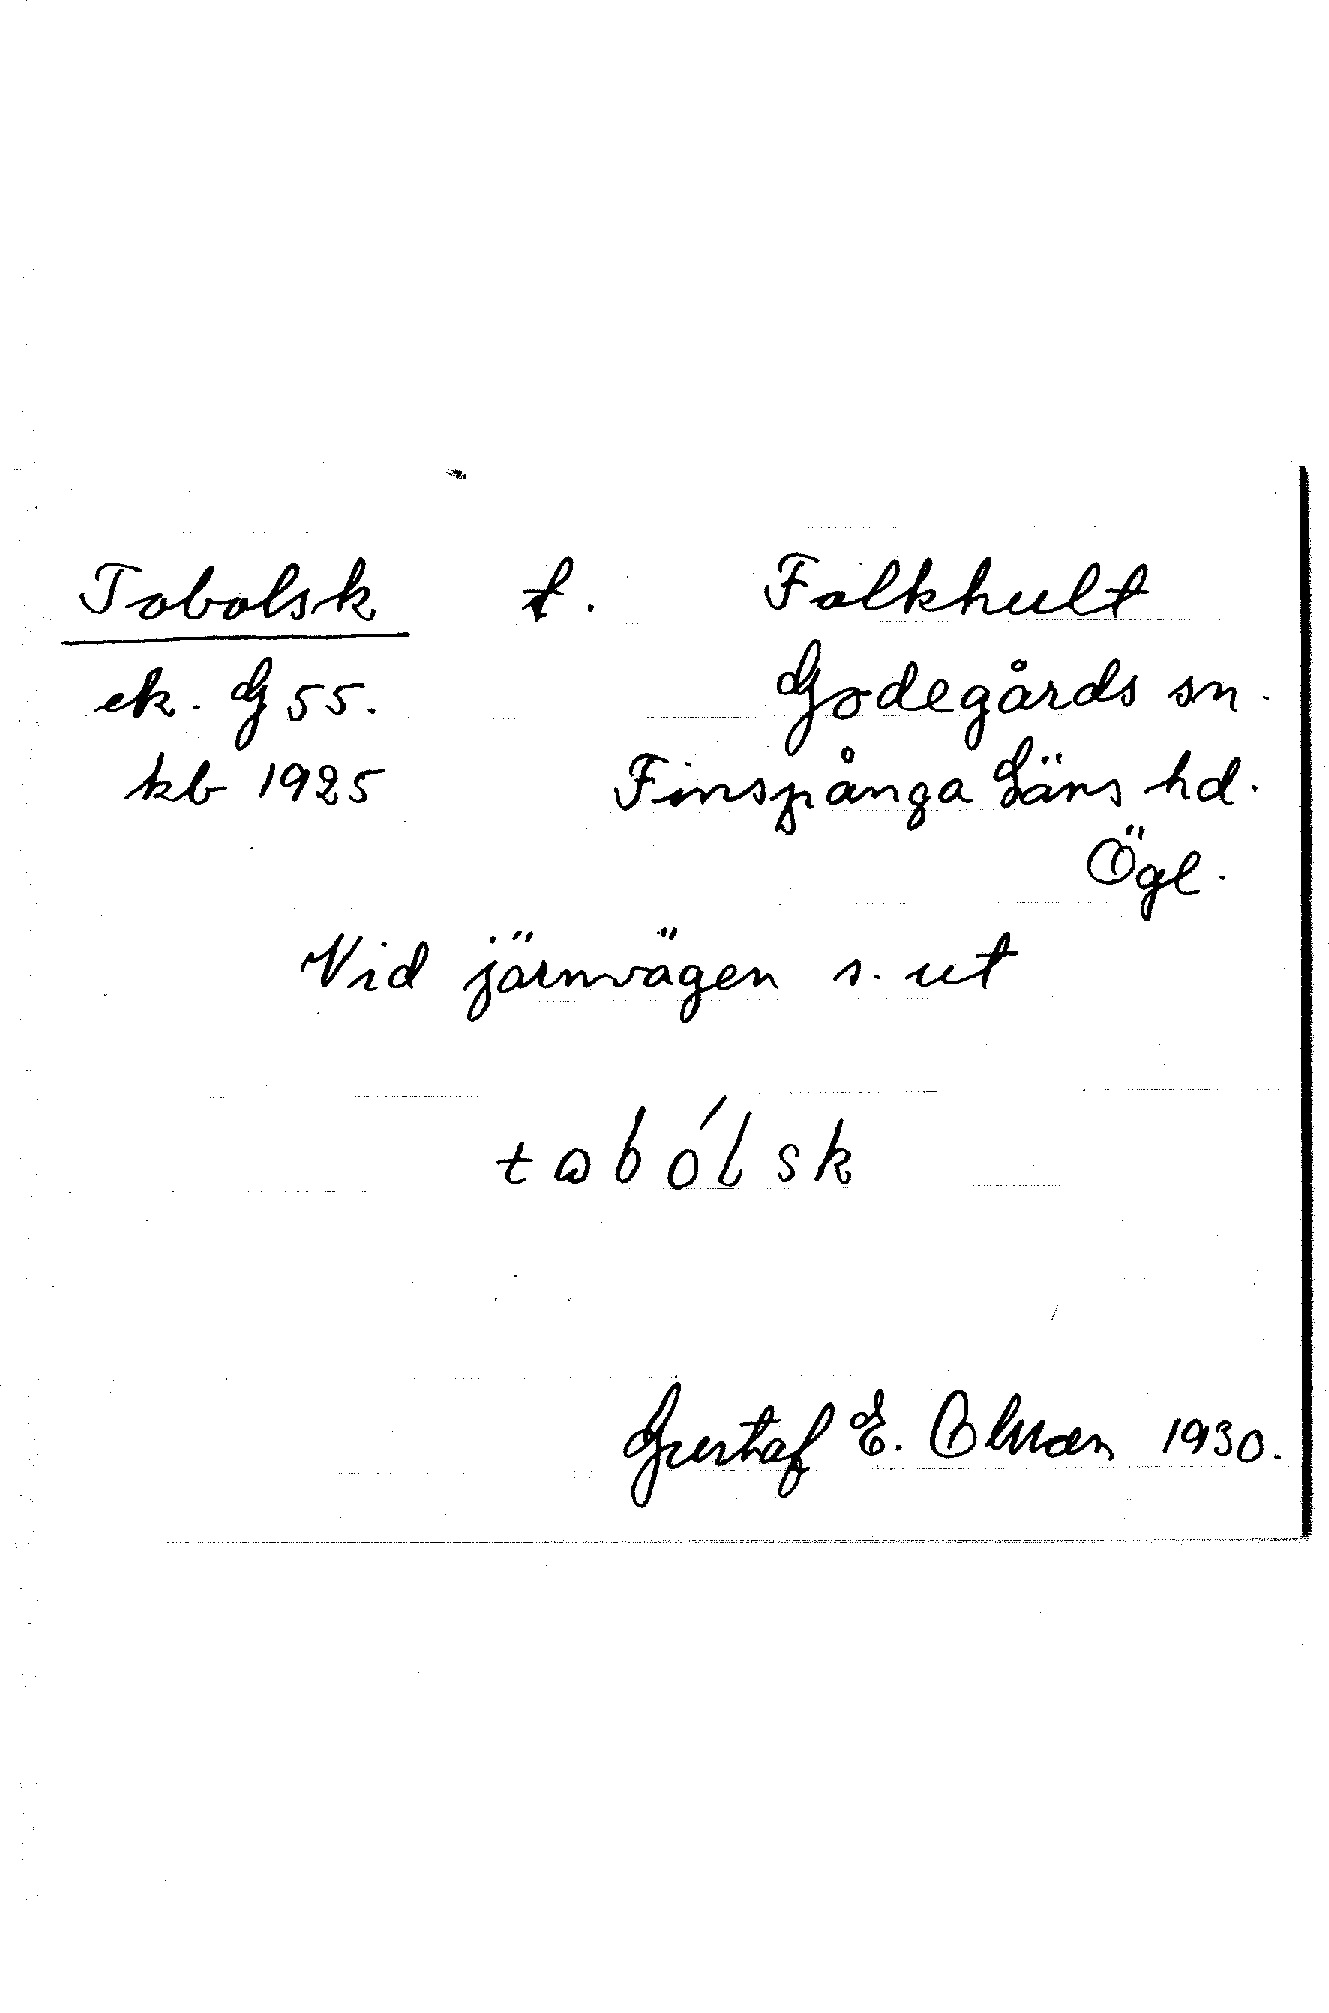 Tobolsk t. Folkhult
ek. G 55. Godegårds sn.
kb 1925 Finspånga Läns hd.
Ögl.
Vid järnvägen s. ut
tωbólsk
Gustaf E. 1930.